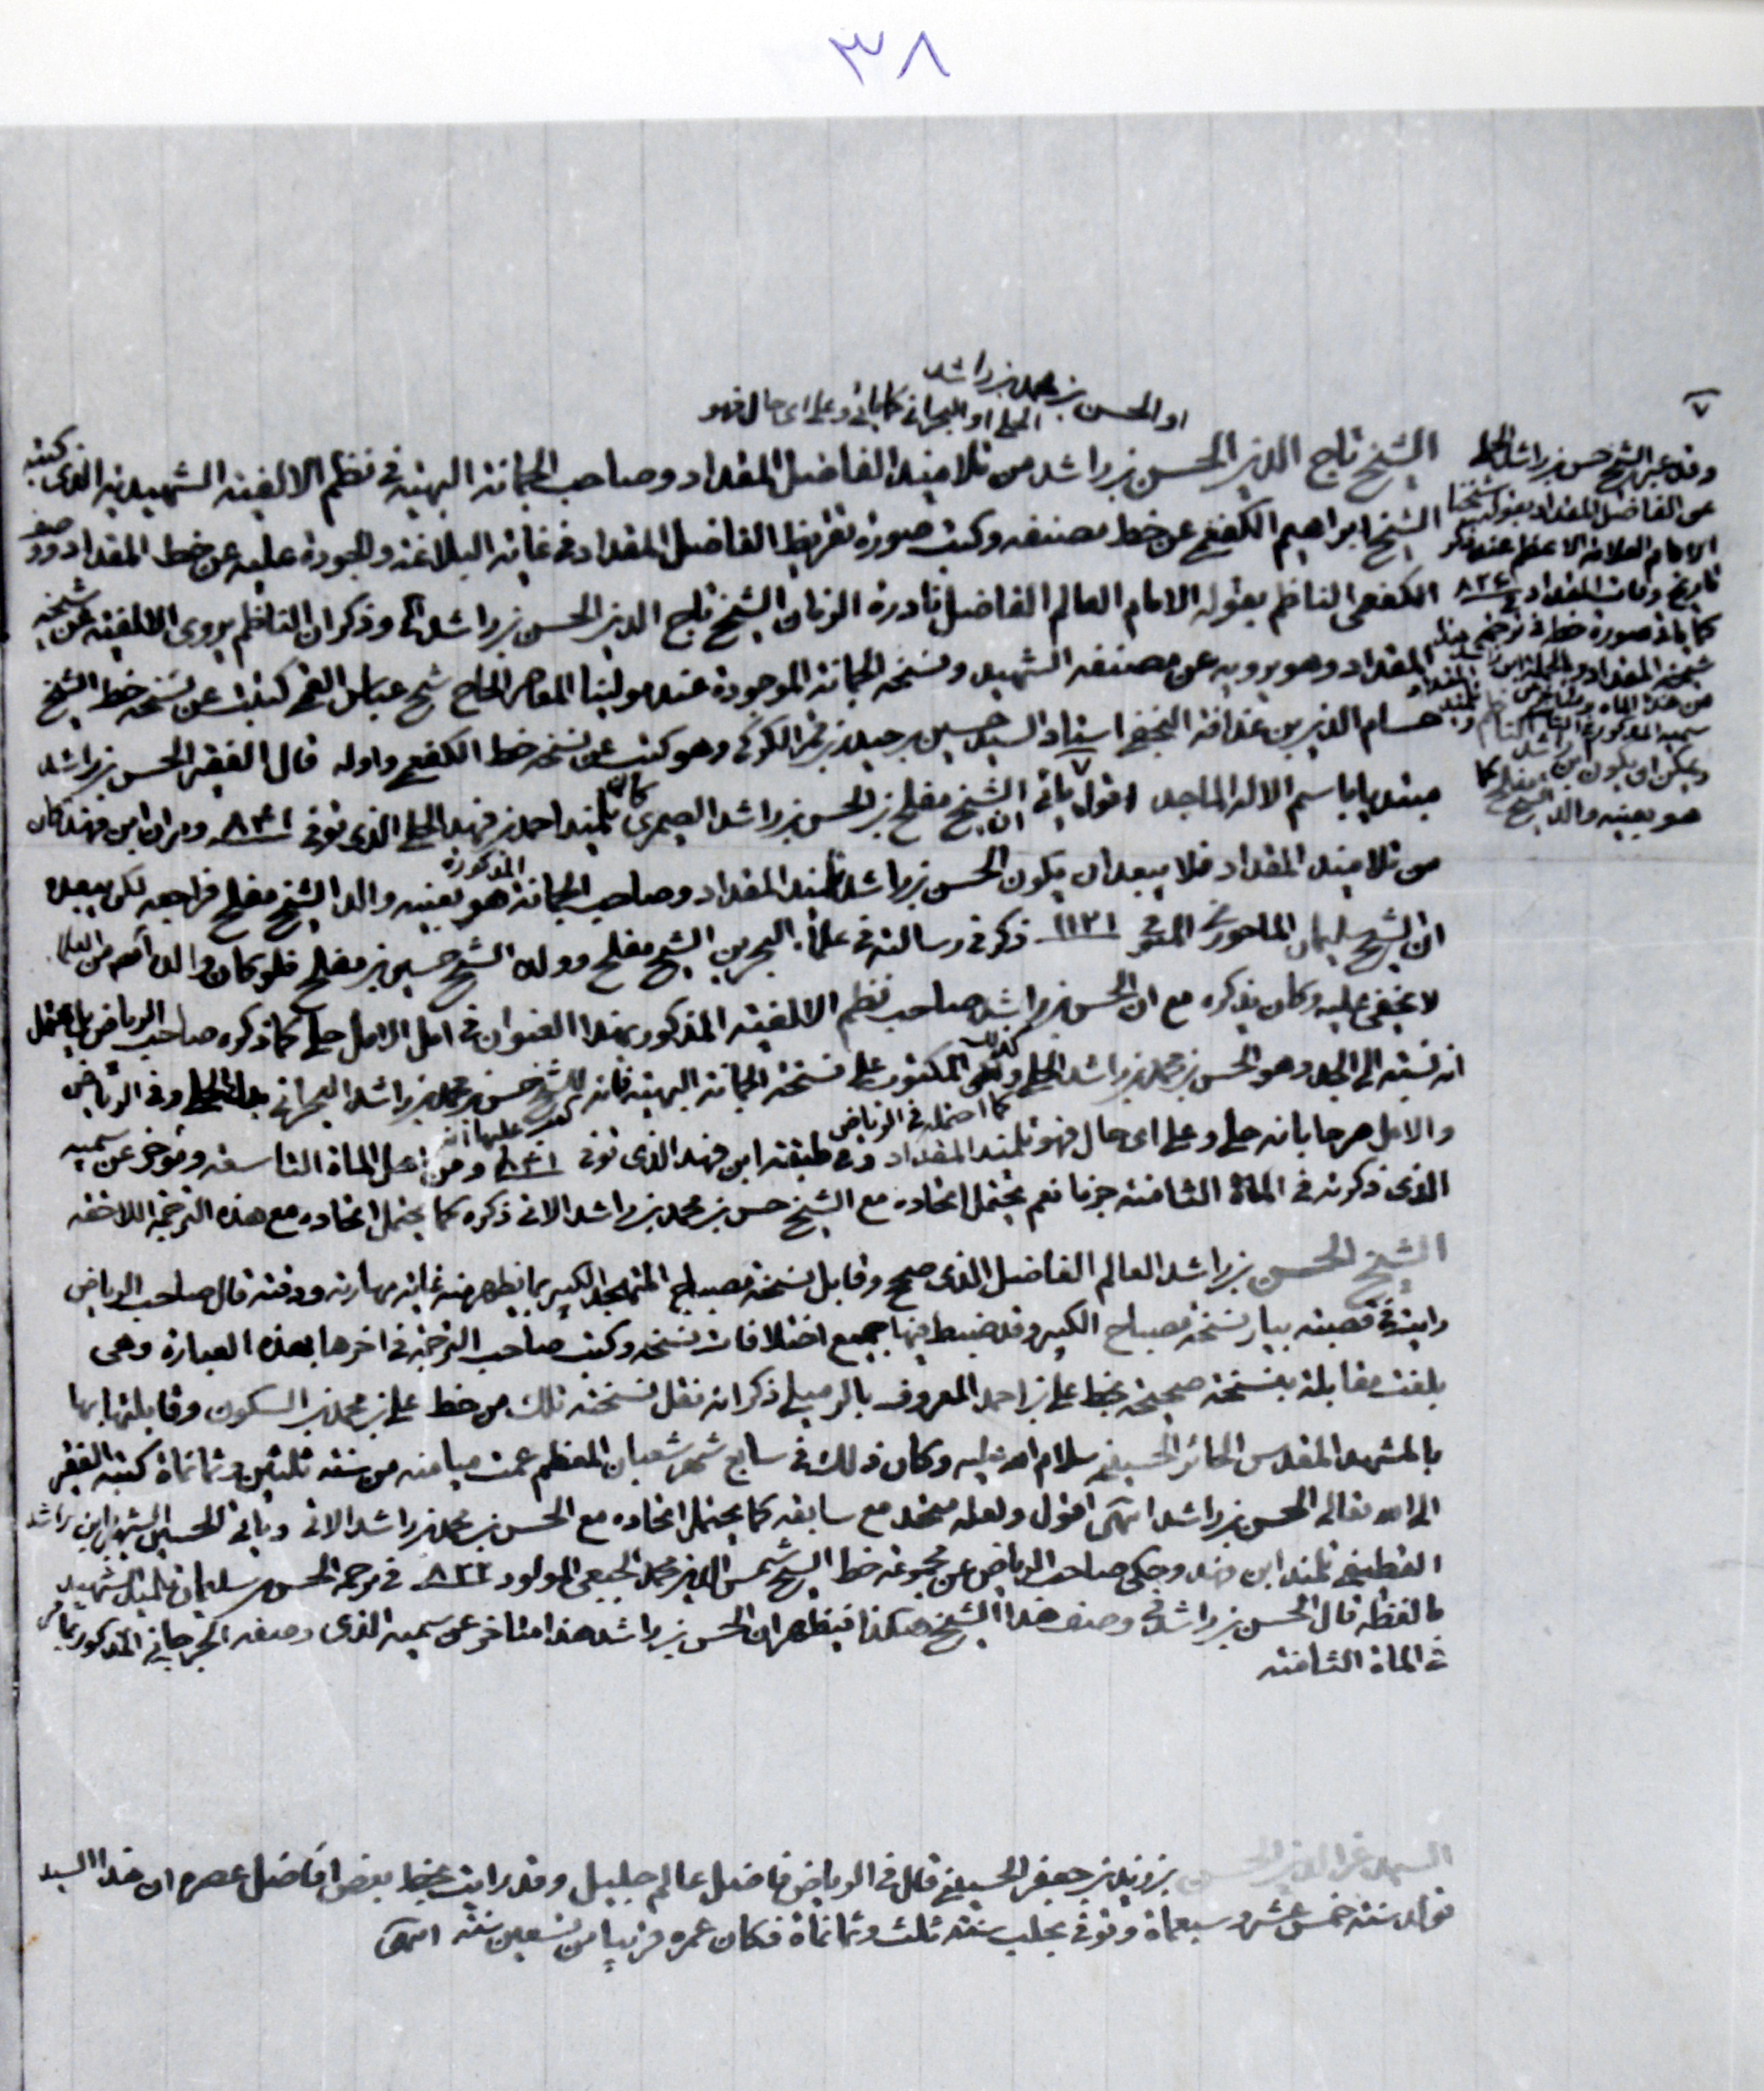 ٣٨
او الحسن بن محمد بن راشد
الحلي او البحراني كما ياتي وعلى اى حال فهو
الشيخ تاج الدين الحسن بن راشد من تلاميذ الفاضل المقداد وصاحب الجمانة البهية في نظم الالفية الشهيدية الذى كتبه
الشيخ ابراهيم الكفعمي عن خط مصنفه وكتب صورة تقريظ الفاضل المقداد في غاية البلاغة والجودة عليه عن خط المقداد ووصف
الكفعمى الناظم بقوله الامام العالم الفاضل نادرة الزمان الشيخ تاج الدين الحسن بن راشد وذكر ان الناظم يروى الالفية عن شيخه
المقداد وهو يرويه عن مصنفه الشهيد ونسخة الجمانة الموجودة عند مولينا المعاصر الحاج شيخ عباس القمي كتبت عن نسخة خط الشيخ
حسام الدين بن عذافة النجفي استاد السيد حسين بن حيدر بن قمر الكركي وهو كتب عن نسخة خط الكفعمي واوله قال الفقير الحسن بن راشد
مبتديا باسم الاله الماجد اقول ياتي ان الشيخ مفلح بن الحسن بن راشد الصيمرى كان تلميذ احمد بن فهد الحلي الذى توفى ٨٤١ ومر ان ابن فهد كان
من تلاميذ المقداد فلا يبعد ان يكون الحسن بن راشد تلميذ المقداد وصاحب الجمانة المذكورة هو بعينه والد الشيخ مفلح فراجعه لكن يبعده
ان الشيخ سليمان الماحوزى المتوفى ١١٢١ ذكر في رسالته في علماء البحرين الشيخ مفلح وولده الشيخ حسين بن مفلح فلو كان والده اكم من العلماء
لا يخفى عليه وكان يذكره مع ان الحسن بن راشد صاحب نظم الالفية المذكور بهذا العنوان في امل الامل حلي كما ذكره صاحب الرياض بل يحتمل
انه نسبة الى الجد وهو الحسن بن محمد بن راشد الحلي وكذلك المكتوب على نسخة الجمانة البهية فانه للشيخ حسن بن محمد بن راشد البحراني بدل الحلي وفي الرياض
والامل صرحا بانه حلي وعلى اى حال فهو تلميذ المقداد كما احتمله في الرياض وفي طبقة ابن فهد الذى توفى ٨٤١ ومن اهل المائة التاسعة ومؤخر عن سميه
الذى ذكرته في المائة الثامنة جزما نعم يحتمل اتحاده مع الشيخ حسن بن محمد بن راشد الاتى ذكره كما يحتمل اتحاده مع هذه الترجمة اللاحقة
الشيخ الحسن بن راشد العالم الفاضل الذى صحح وقابل نسخة مصباح المتهجد الكبير بما يظهر منه غاية مهارته ودقته قال صاحب الرياض
رايت في قصبة بيار نسخة مصباح الكبير وقد ضبط فيها جميع اختلافات نسخه وكتب صاحب الترجمة في اخرها بهذه العبارة وهى
بلغت مقابلة بنسخة صحيحة بخط علي بن احمد المعروف بالرميلي ذكر انه نقل نسخته تلك من خط علي بن محمد بن السكون وقابلتها بها
بالمشهد المقدس الحائر الحسيني سلام الله عليه وكان ذلك في سابع شهر شعبان المعظم عمت ميامنه من سنة ثلثين وثمانمائة كتبه الفقير
الى الله تعالى الحسن بن راشد انتهى اقول ولعله متحد مع سابقه كما يحتمل اتحاده مع الحسن بن محمد بن راشد الاتى وياتى الحسين الشهير بابن راشد
القطيفي تلميذ ابن فهد وحكى صاحب الرياض عن مجموعة خط الشيخ شمس الدين محمد الجبعي المولود ٨٢٢ في ترجمة الحسن بن سليمان تلميذ الشهيد
ما لفظه قال الحسن بن راشد في وصف هذا الشيخ هكذا فيظهر ان الحسن بن راشد هذا متاخر عن سميه الذى وصفه الجرجاني المذكور
في المائة الثامنة
السيد عز الدين الحسن بن زيد بن جعفر الحسيني قال في الرياض فاضل عالم جليل وقد رايت بخط بعض افاضل عصره ان هذا السيد
تولد سنة خمس عشر وسبعمائة وتوفي بحلب سنة ثلث وثمانمائة فكان عمره قريبا من تسعين سنة انتهى
٧
وقد عبر الشيخ حسن بن راشد الحلي
عن الفاضل المقداد بقوله شيخنا
الامام العلامة الاعظم عند ذكر
تاريخ وفات المقداد في ٨٢٦
كما ياتى صورة خطه في ترجمة
شيخه المقداد وبالجملة ابن راشد
من هذه المائة ومتاخر عن
سميه المذكور في
ويمكن ان يكون ابن راشد
هو بعينه والد الشيخ مفلح كما